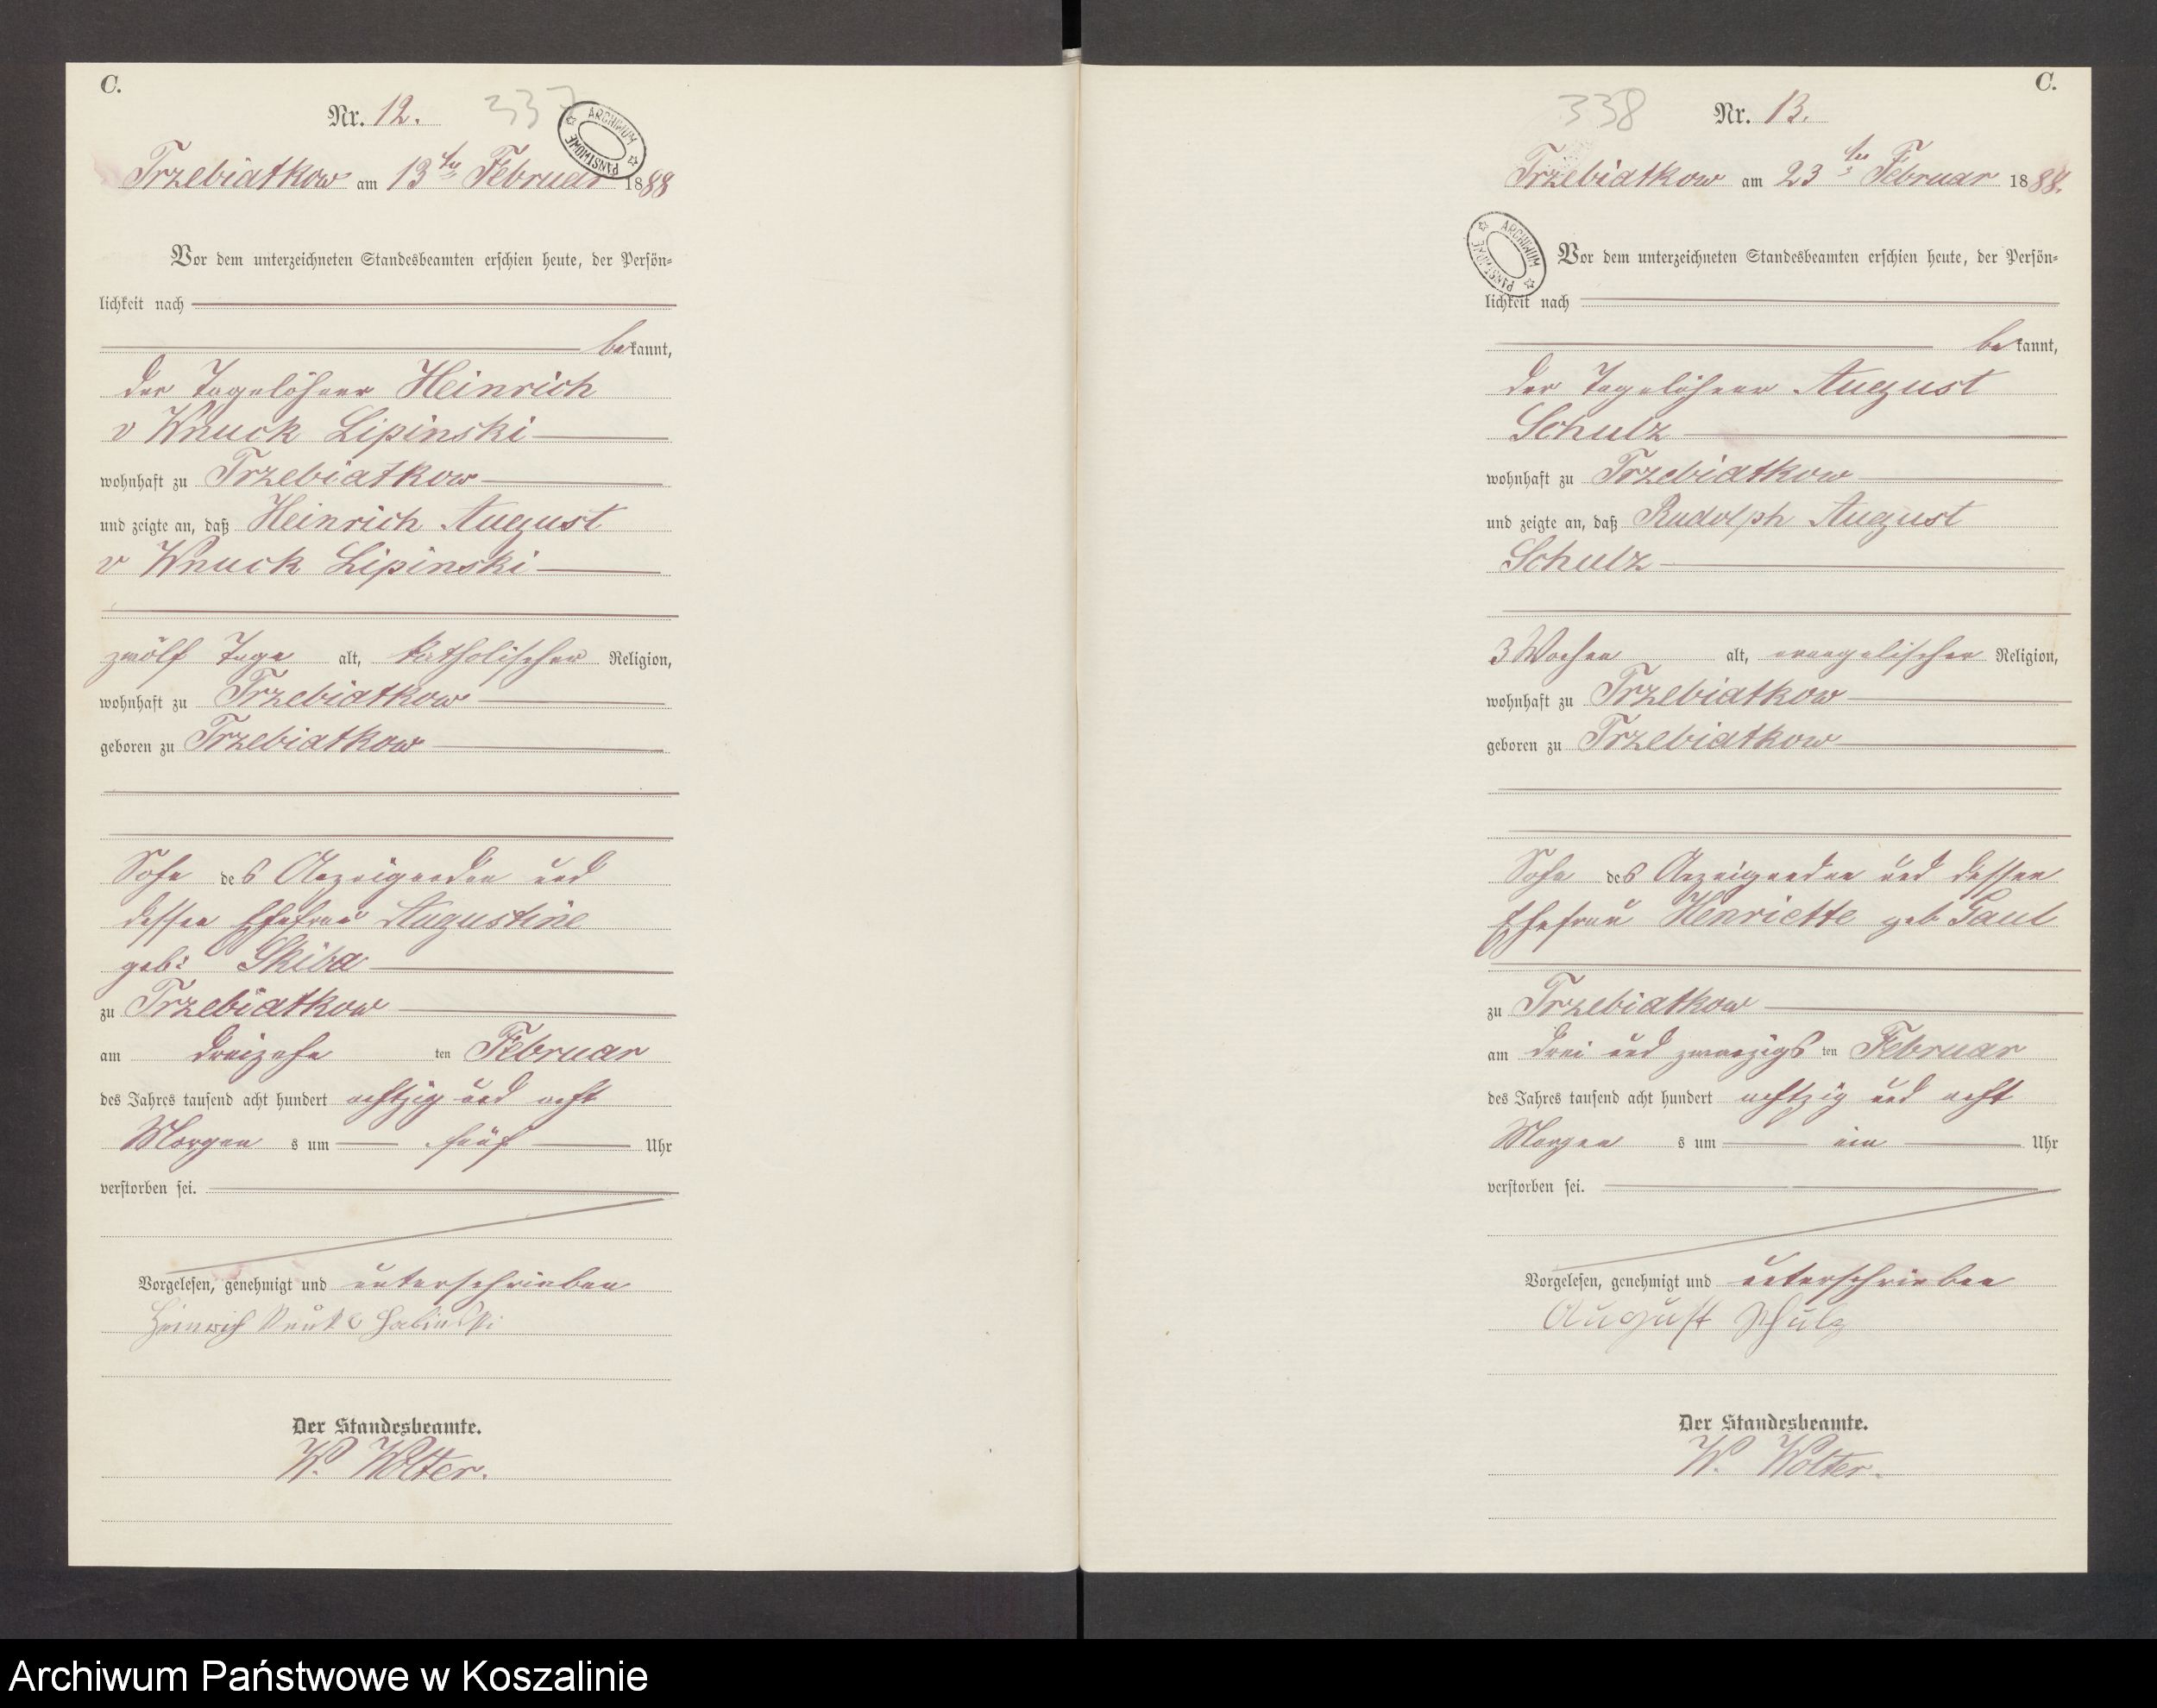 C.
Nr. 12.
337
ARCHIWUM PAŃSTWOWE
Trzebiatkow am 13ten Februar 1888
Vor dem unterzeichneten Standesbeamten erschien heute, der Persön-
lichkeit nach
bekannt,
der Tagelöhner Heinrich
v Wnuck Lipinski
wohnhaft zu Trzebiatkow
und zeigte an, daß Heinrich August
v Wnuck Lipinski
zwölf Tage alt, katholischer Religion,
wohnhaft zu Trzebiatkow
geboren zu Trzebiatkow
Sohn des Anzeigenden und
dessen Ehefrau Augustine
geb: Skiba
zu Trzebiatkow
am dreizehn ten Februar
des Jahres tausend acht hundert achtzig und acht
Morgens um fünf Uhr
verstorben sei.
Vorgelesen, genehmigt und unterschrieben
Heinrich
Der Standesbeamte.
W. Wolter.
C.
338
Nr. 13.
Trzebiatkow am 23ten Februar 1888.
ARCHIWUM PAŃSTWOWE
Vor dem unterzeichneten Standesbeamten erschien heute, der Persön-
lichkeit nach
bekannt,
der Tagelöhner August
Schulz
wohnhaft zu Trzebiatkow
und zeigte an, daß Rudolph August
Schulz
3 Wochen alt, evangelischer Religion,
wohnhaft zu Trzebiatkow
geboren zu Trzebiatkow
Sohn des Anzeigenden und dessen
Ehefrau Henriette geb Paul
zu Trzebiatkow
am drei und zwanzigs ten Februar
des Jahres tausend acht hundert achtzig und acht
Morgens um ein Uhr
verstorben sei.
Vorgelesen, genehmigt und unterschrieben
August Schulz
Der Standesbeamte.
W. Wolter.
Archiwum Państwowe w Koszalinie